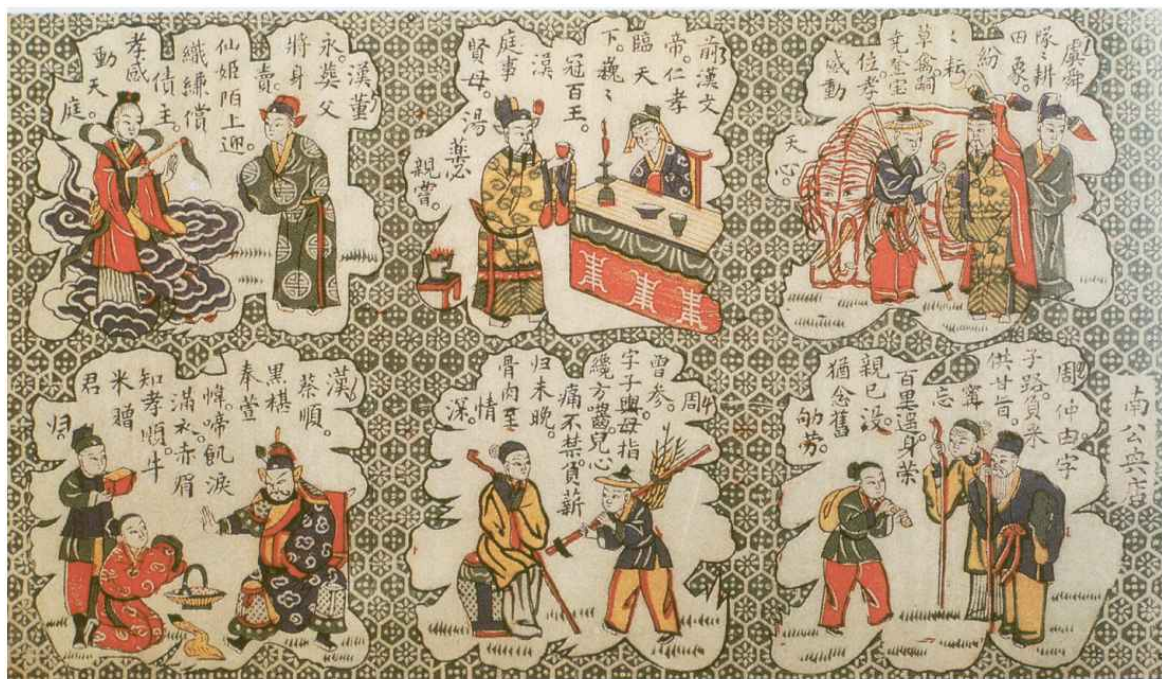 虞舜
隊ミ耕
田象。
紛
ミ耘
草禽嗣
尭登宝
位孝
感動
天心。
前漢文
帝。仁孝
臨天
下。巍ミ
冠百王。
漢
庭事
賢母。
湯
藥必
親嘗。
漢董
永。葬父
將身
賣。
仙姬陌上迎。
織縑償
債主。
孝感
動天庭。
南公
周仲由字
子路。負米
供甘旨。
寧
忘
百里遥。身荣
親已没。
猶念舊
劬劳。
周
曾参。
字子輿。母指
纔方嚙兒心
痛不禁。負薪
归未晚。
骨肉至
情
深。
漢
蔡順。
黑椹
奉萱
幃。啼飢淚
滿衣。赤眉
知孝順。牛
米贈
君
归